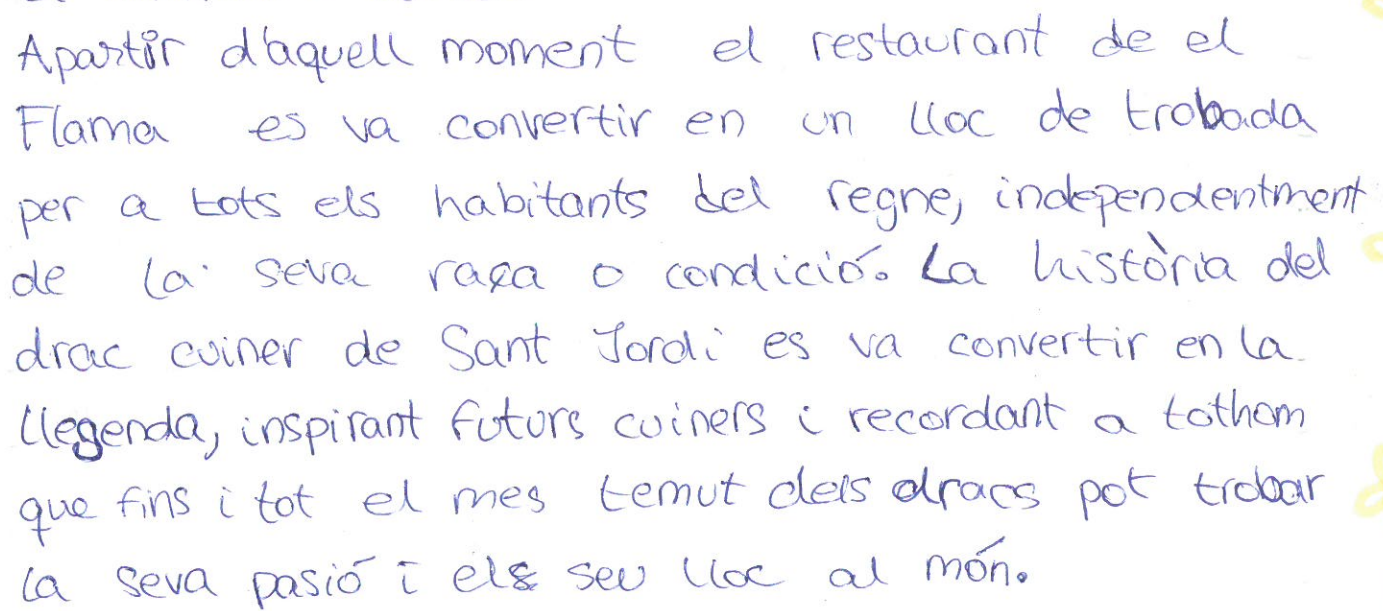 Apartir d'aquell moment el restaurant de el
Flama es va convertir en un lloc de trobada
per a tots els habitants del regne, independentment
de la seva raça o condició. La història del
drac cuiner de Sant Jordi es va convertir en la
llegenda, inspirant futurs cuiners i recordant a tothom
que fins i tot el mes temut dels dracs pot trobar
la seva pasió i els seu lloc al món.